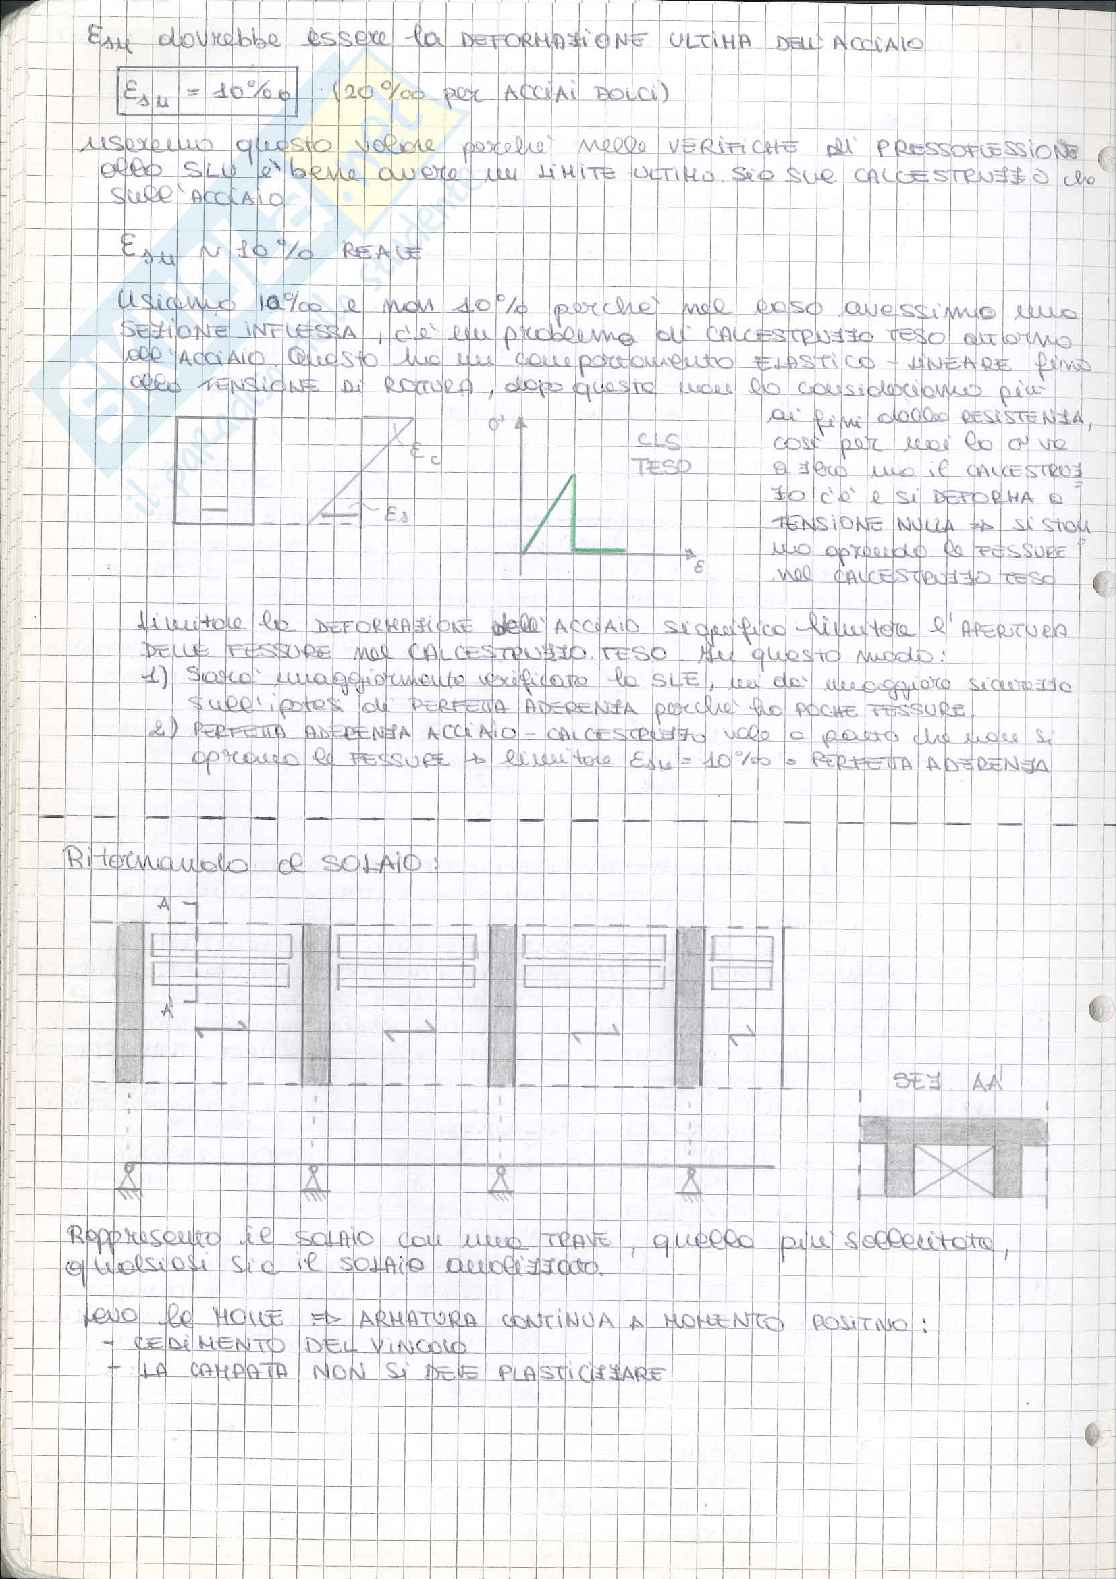 Esu dovrebbe essere la DEFORMAZIONE ULTIMA DELL'ACCIAIO
εsu = 10‰ (20‰ per ACCIAI DOLCI)
useremo questo valore perché nelle VERIFICHE di PRESSOFLESSIONE
allo SLU è bene avere un LIMITE ULTIMO sia sul CALCESTRUZZO che
sull'ACCIAIO
εsu ~ 10% REALE
Usiamo 10‰ e non 10% perché nel caso avessimo una
SEZIONE INFLESSA, c'è un problema di CALCESTRUZZO TESO attorno
all'ACCIAIO. Questo ha un comportamento ELASTICO-LINEARE fino
alla TENSIONE DI ROTTURA, dopo questa non lo consideriamo più
ai fini della RESISTENZA,
così per noi la σ va
a zero ma il CALCESTRUZ
ZO c'è e si DEFORMA a
TENSIONE NULLA => si stan
no aprendo le FESSURE
nel CALCESTRUZZO TESO
εc
εs
σ
CLS
TESO
ε
Limitare la DEFORMAZIONE dell'ACCIAIO significa limitare l'APERTURA
DELLE FESSURE nel CALCESTRUZZO TESO. In questo modo:
1) Sarà maggiormente verificato lo SLE, mi dà maggiore sicurezza
sull'ipotesi di PERFETTA ADERENZA perché ho POCHE FESSURE.
2) PERFETTA ADERENZA ACCIAIO-CALCESTRUZZO vale a patto che non si
aprano le FESSURE → limitare εsu = 10‰ = PERFETTA ADERENZA
Ritornando al SOLAIO:
A
A
SEZ AA
Rappresento il SOLAIO con una TRAVE, quella più sollecitata,
qualsiasi sia il SOLAIO analizzato.
Levo le MOLLE => ARMATURA CONTINUA A MOMENTO POSITIVO:
- CEDIMENTO DEL VINCOLO
- LA CAMPATA NON SI DEVE PLASTICIZZARE